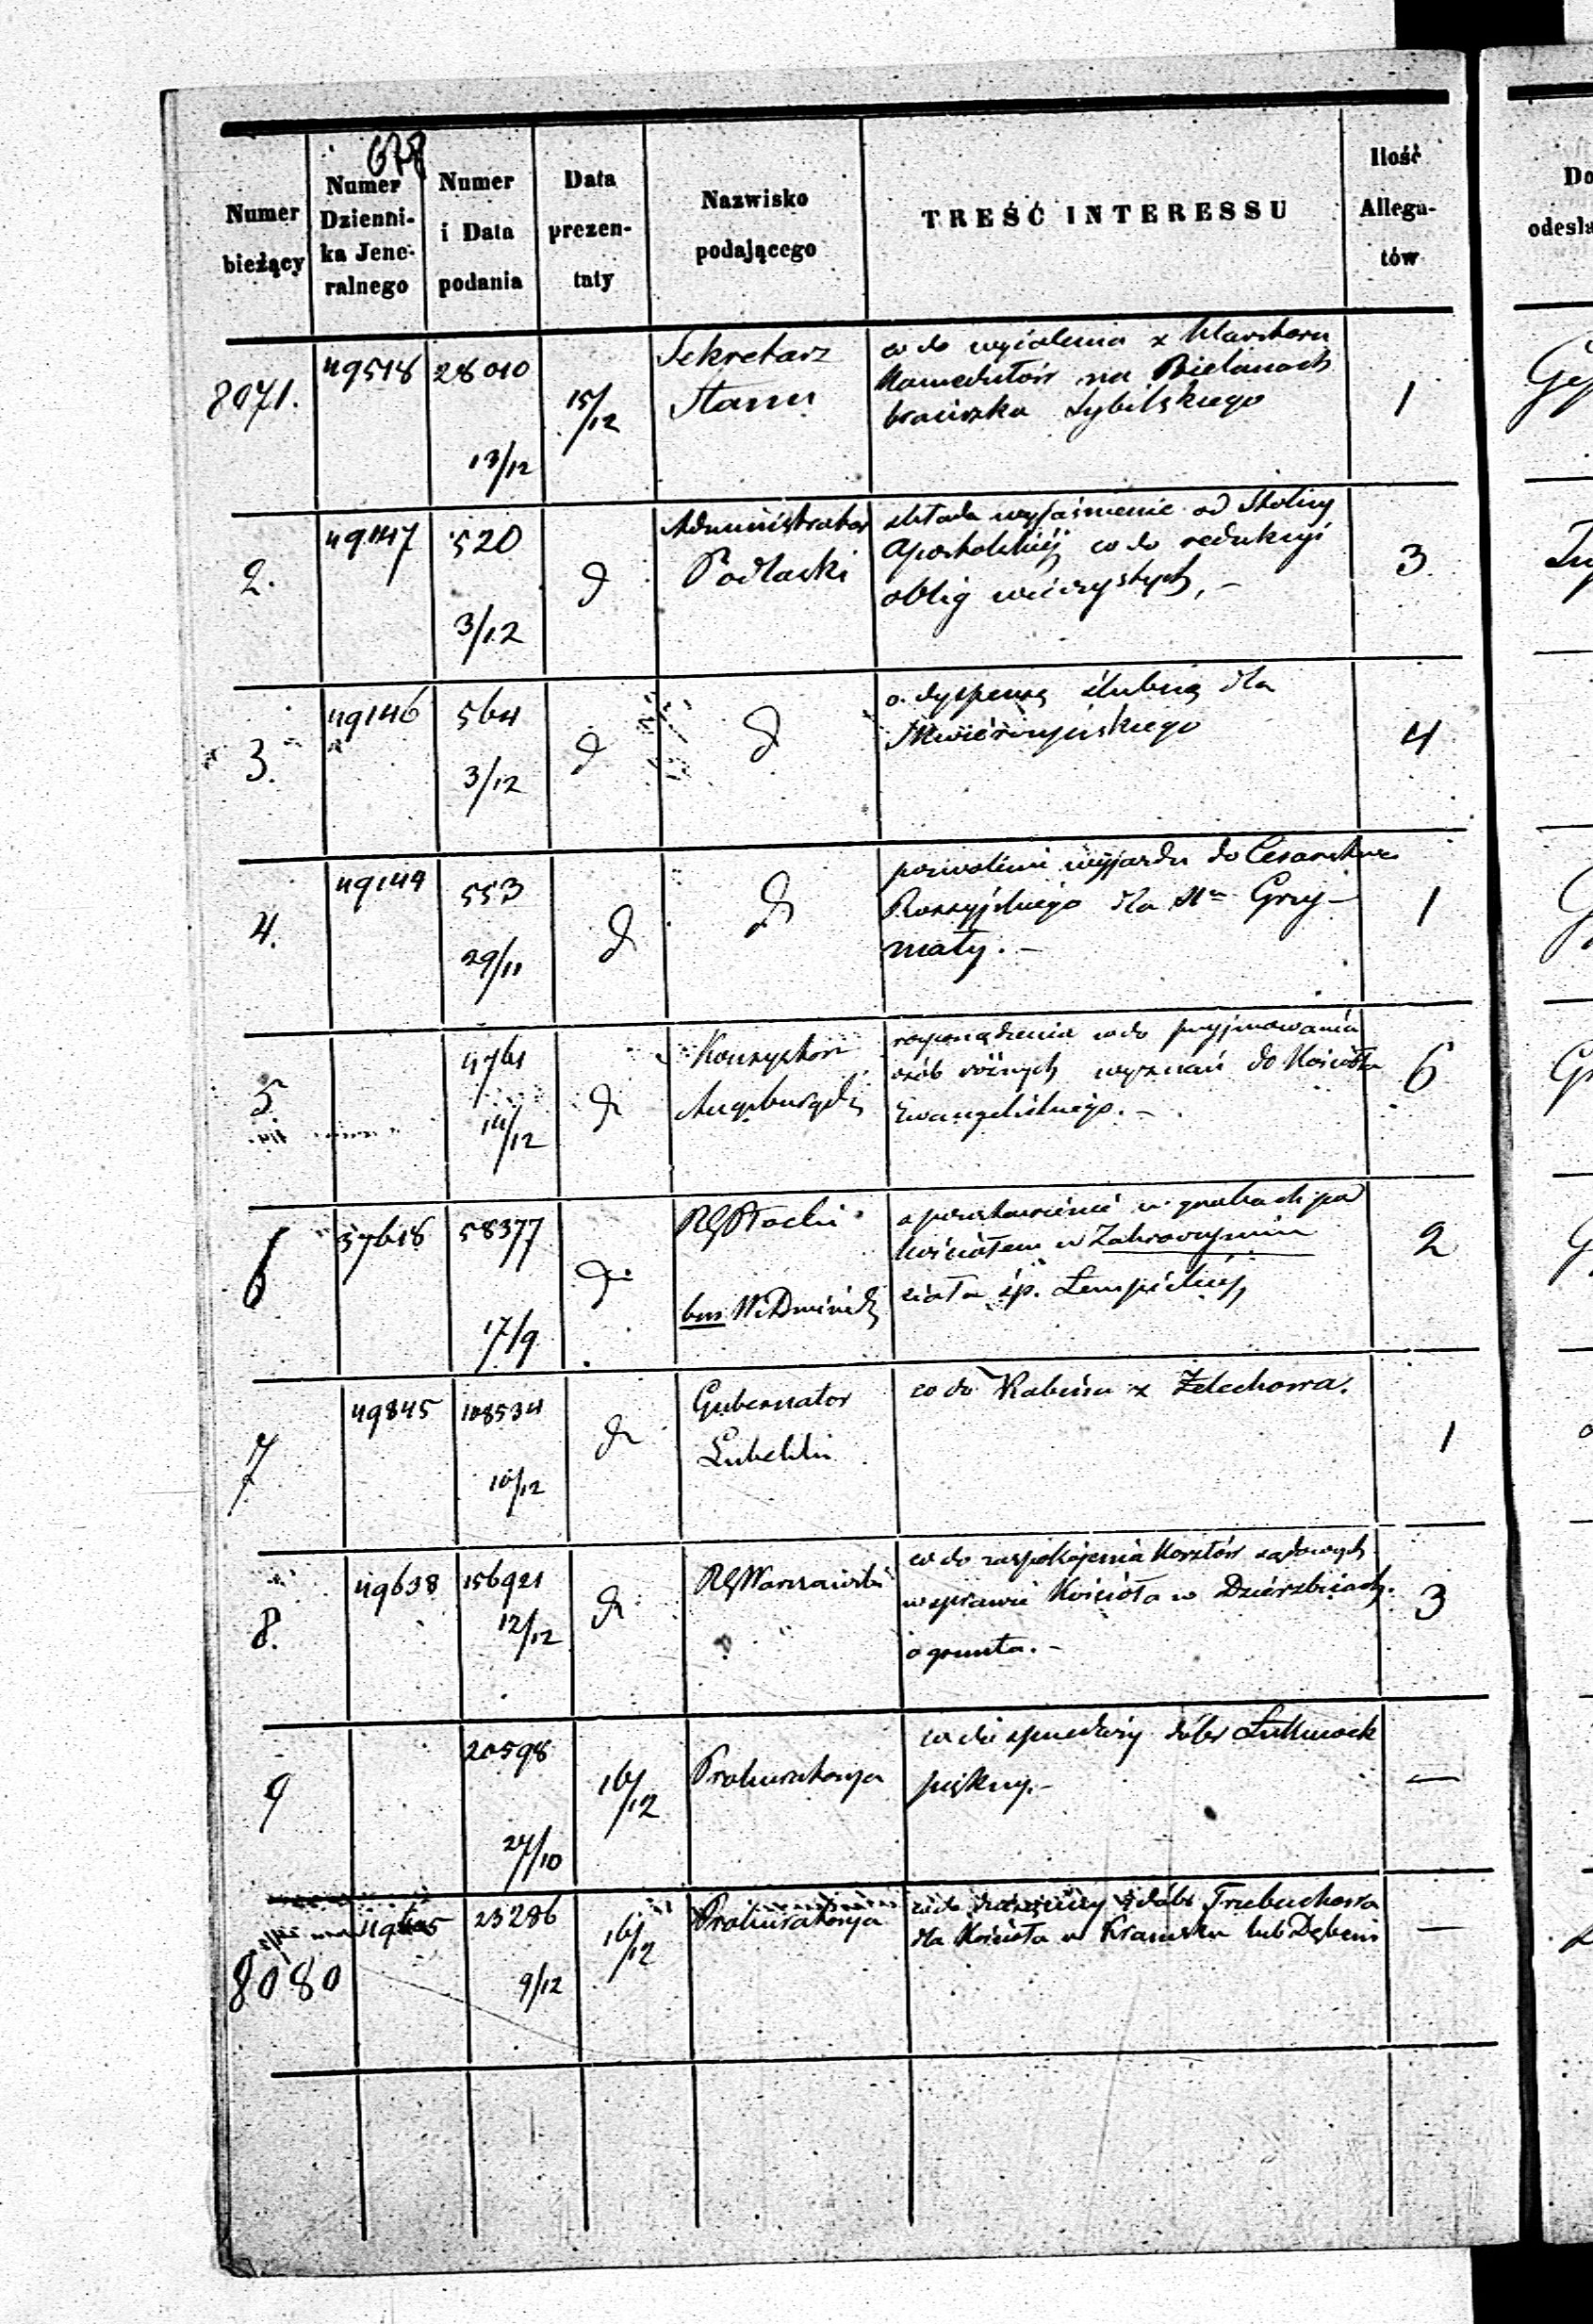 678
Numer bieżący
Numer Dzienni-ka Jene-ralnego
Numer i Data podania
Data prezen-taty
Nazwisko podającego
TREŚĆ INTERESSU
Ilość Allega-tów
Do
odesła
8071. 49518 28010 13/12 15/12 Sekretarz Stanu
co do wydalenia z Klasztoru
Kamedułów na Bielanach
braciszka
1
2. 49147 520 3/12 d Administrator Podlaski
składa wyjaśnienie od Stolicy
Apostolskiéj co do redukcyi
oblig wieczystych, –
3
3. 49146 564 3/12 d d
o dyspensę ślubną dla
4
4. 49149 553 29/11 d d
pozwolenie wyjazdu do Cesarstwa
Rossyjskiego dla Grzy–
mały. –
1
5 4764 14/12 d Konsystorz Augsburgski
rozporządzenia co do przyjmowania
osób różnych wyznań do Kościoła
Ewangelickiego. –
6
6 37618 58377 17/9 d RG Płocki
o pozostawienie w grobach pod
kościołem w Zakroczymiu
ciała śp. Lempickiéj
2
7 49845 108534 10/12 d Gubernator Lubelski
co do Rabina z Żelechowa.
1
8. 49638 156921 12/12 d RG Warszawski
co do zaspokojenia kosztów sądowych
w sprawie Kościoła w Dzierzbicach
o grunta. –
3
9 20598 27/10 16/12 Prokuratorya
co do sprzedaży dóbr
–
8080 23286 9/12 16/12 Prokuratorya
co do dziesięciny z dóbr Trębuchowa
dla Kościoła w Kramsku lub Dębem
–